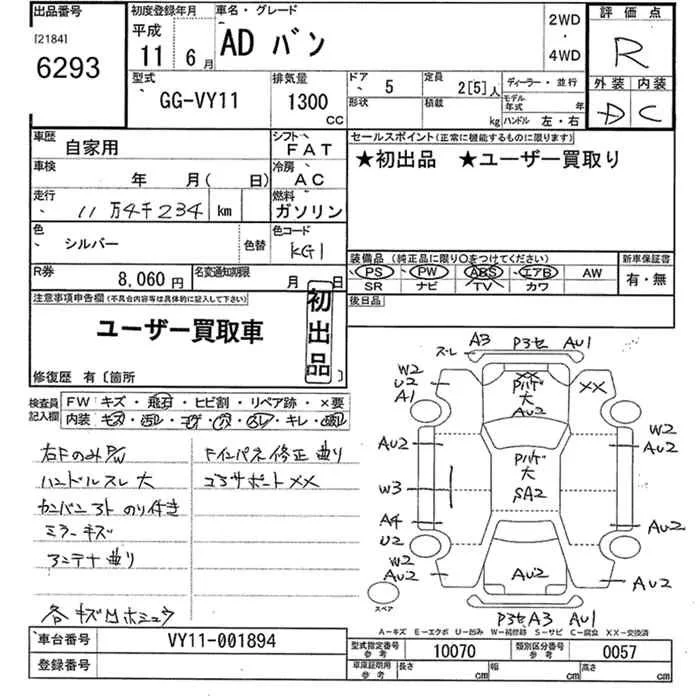 出品番号
[2184]
6293
初度登録年月
平成
11 6月
車名・グレード
AD バン
2WD
・
4WD
評価点
R
外装 内装
D C
型式
GG-VY11
排気量
1300
CC
ドア 5
形状
定員 2[5]人
積載 kg
ディーラー・並行
モデル年式 年
ハンドル 左・右
車歴 自家用
シフト FAT
車検 年 月( 日)
冷房 AC
走行 11万4千234 km
燃料 ガソリン
色 シルバー 色替
色コード KG1
R券 8,060円
名変通知期限 月 日
セールスポイント(正常に機能するものに限ります)
★初出品 ★ユーザー買取り
装備品(純正品に限り○をつけてください)
PS PW ABS エアB AW
SR ナビ TV カワ
新車保証書
有・無
後日品
注意事項申告欄(不具合内容等は具体的に記入して下さい)
初出品
ユーザー買取車
修復歴 有〔箇所 〕
検査員記入欄
FW キズ・飛石・ヒビ割・リペア跡・×要
内装・キズ・汚レ・コゲ・穴・スレ・キレ・
右Fのみ P/W
ハンドルスレ 大
カンバン3ト のり付き
ミラーキズ
アンテナ曲り
各キズ凹ホシュウ
Fインパネ修正 曲り
コアサポート××
ズレ A3 P3セ AU1
W2
U2
A1
××
××
Pハゲ
大
AU2
AU2
W2
AU2
Pハゲ
大
SA2
W3
A4
AU2
U2
W2
AU2
AU2
AU2
スペア
P3セ A3 AU1
A－キズ E－エクボ U－凹み W－補修跡 S－サビ C－腐食 XX－交換済
車台番号 VY11-001894
登録番号
型式指定番号
参考
10070
類別区分番号
参考
0057
車庫証明用
参考
長さ cm
幅 cm
高さ cm